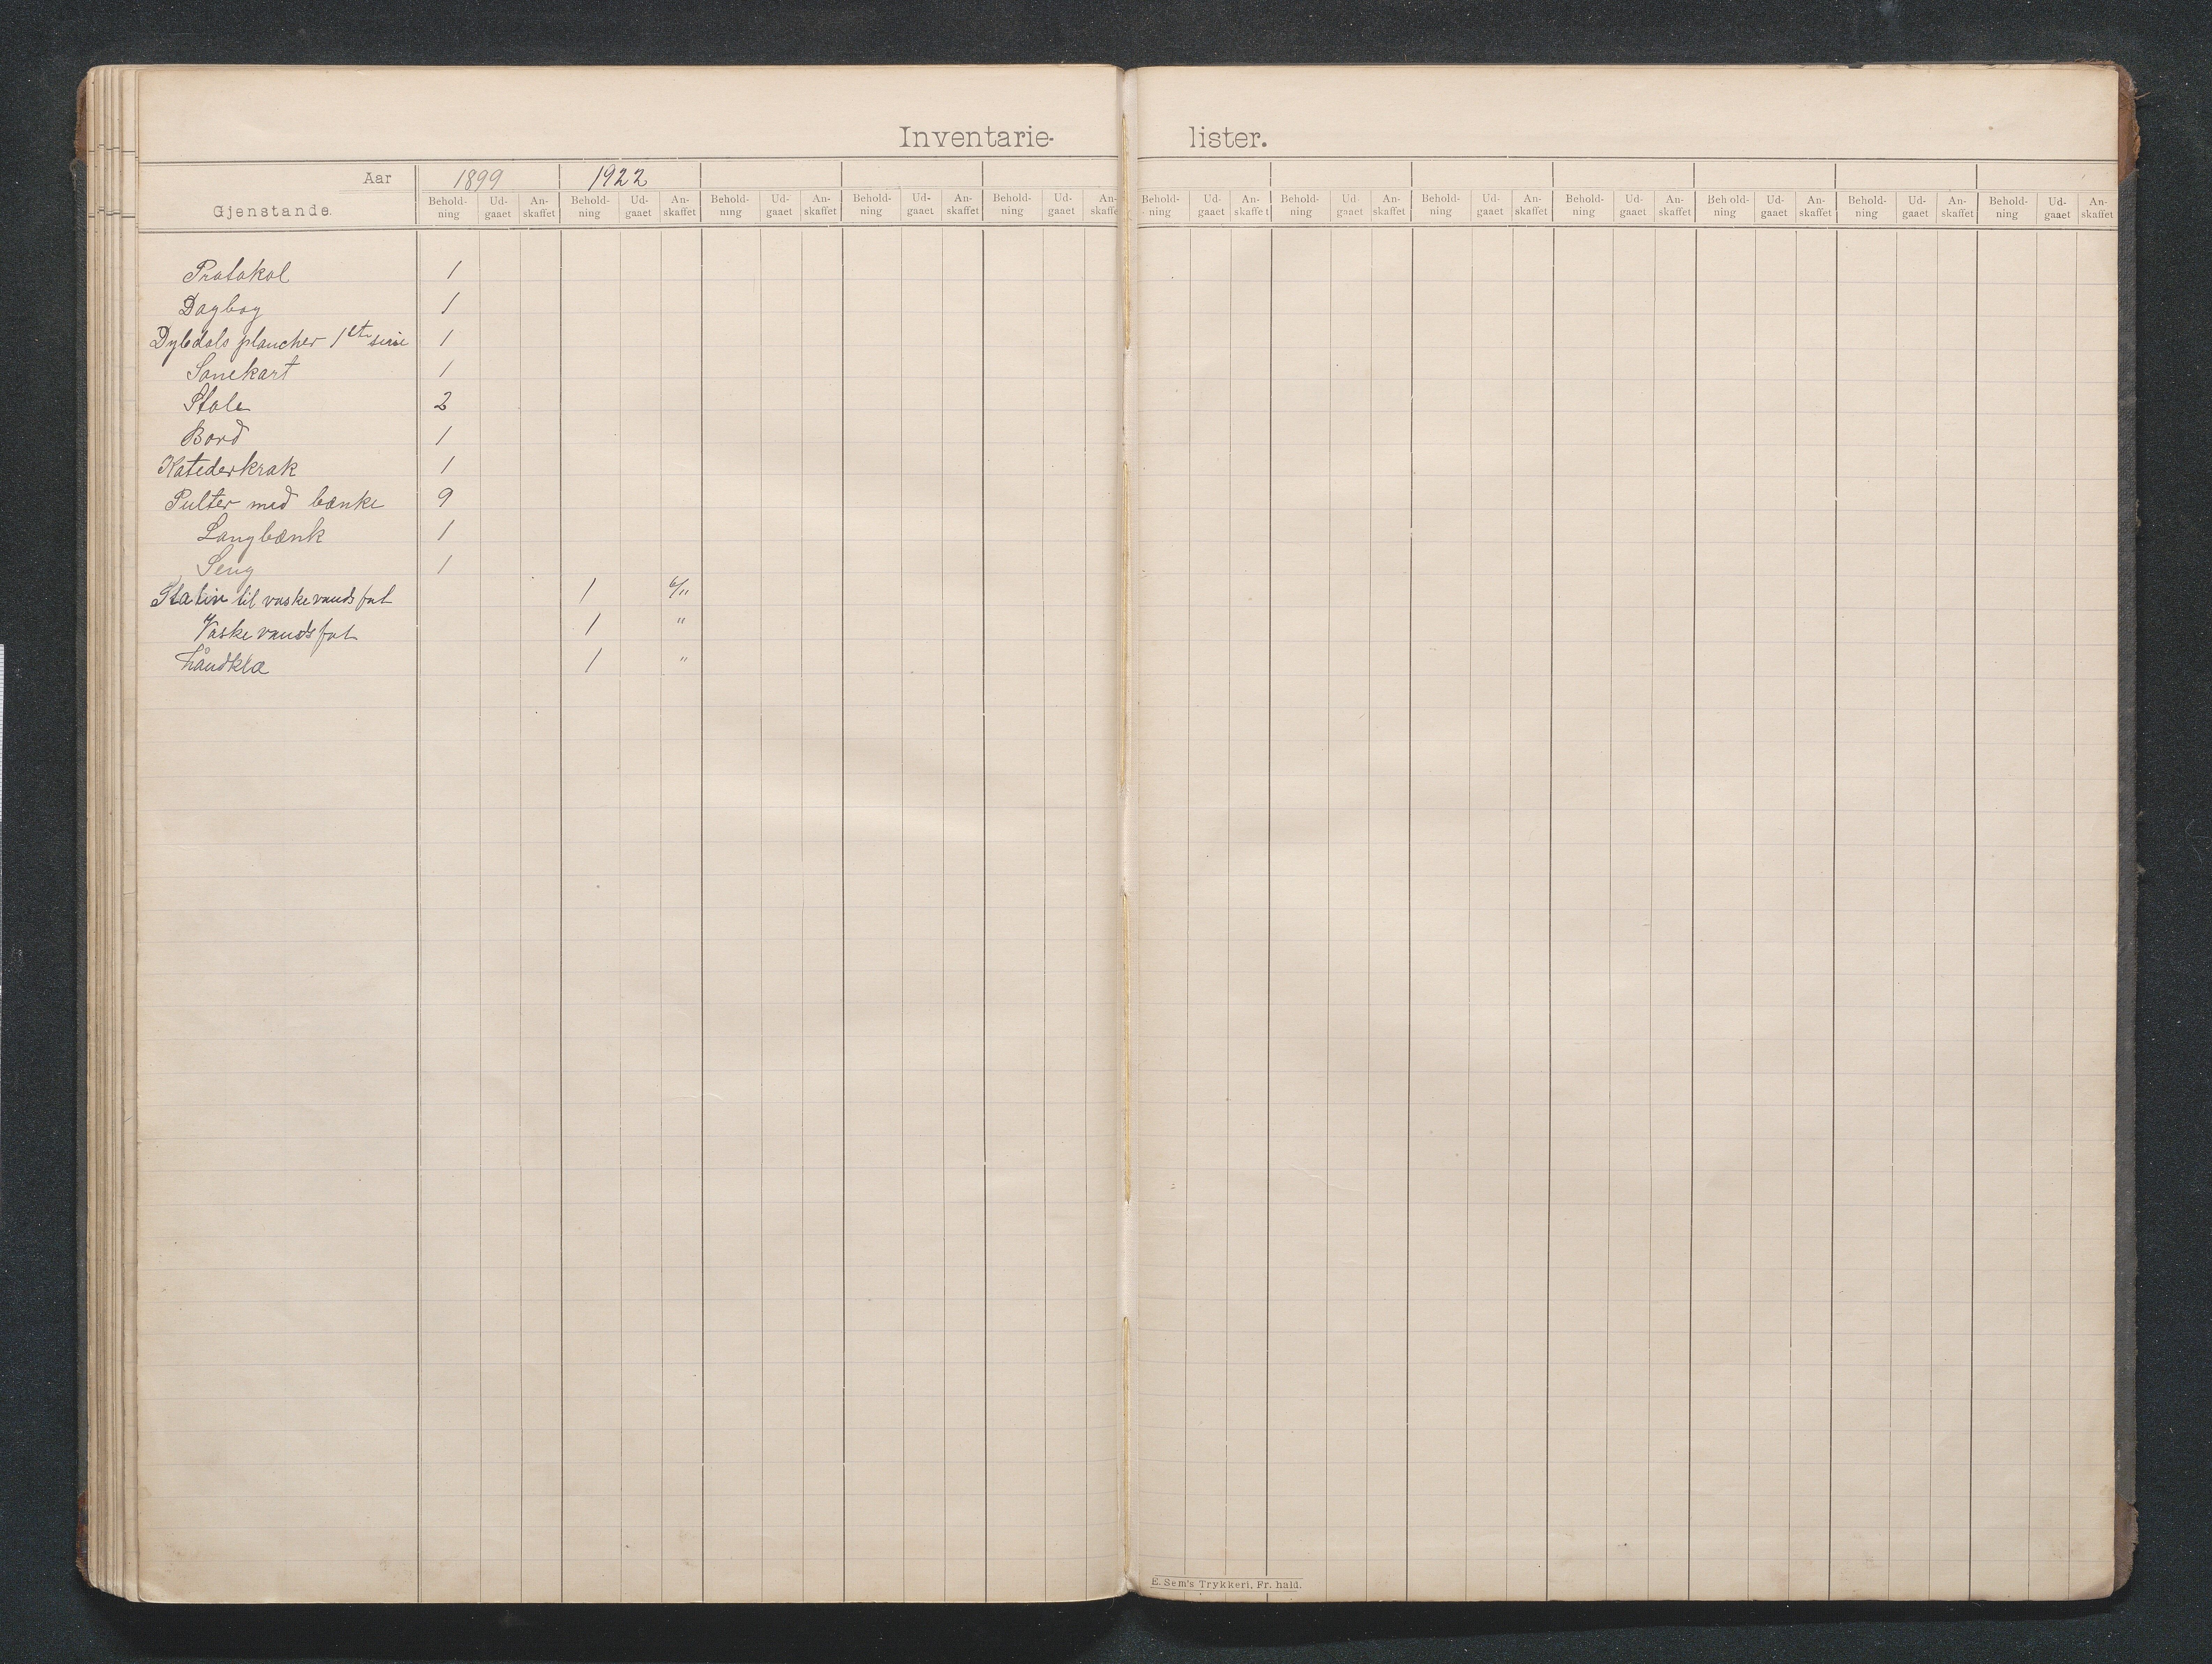 Inventarie- lister.
Aar 1899 1922
Gjenstande. Behold-ning Ud-gaaet An-skaffet Behold-ning Ud-gaaet An-skaffet Behold-ning Ud-gaaet An-skaffet Behold-ning Ud-gaaet An-skaffet Behold-ning Ud-gaaet An-skaffet Behold-ning Ud-gaaet An-skaffet Behold-ning Ud-gaaet An-skaffet Behold-ning Ud-gaaet An-skaffet Behold-ning Ud-gaaet An-skaffet Behold-ning Ud-gaaet An-skaffet Behold-ning Ud-gaaet An-skaffet Behold-ning Ud-gaaet An-skaffet
Protokol 1
Dagbog 1
Dybdals plancher 1ste serie 1
Sonekart 1
Stole 2
Bord 1
Katederkrak 1
Pulter med bænke 9
Langbænk 1
Seng 1
Stativ til vaskevandsfat 1 6/11
Vaskevandsfat 1 "
håndklæ 1 "
E. Sem's Trykkeri, Fr. hald.